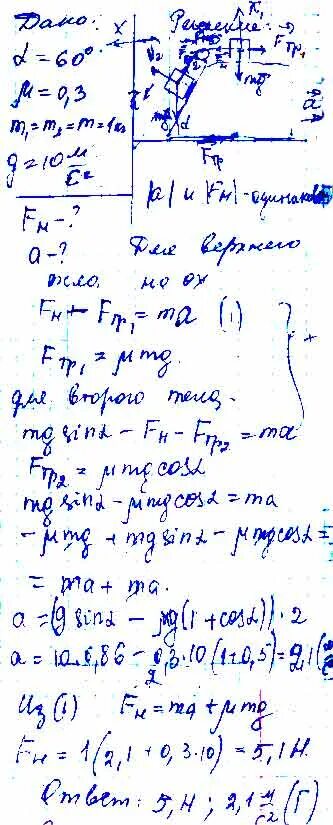 Дано: Решение:
α = 60°
μ = 0,3
m₁ = m₂ = m = 1 кг
g = 10 м/с²
X N₁ Fтр₁ mg α Fтр a
Fн - ?
a - ?
|a| и |Fн| - одинаков
Для верхнего
тела на ох
Fн - Fтр₁ = ma (1)
Fтр₁ = μmg.
для второго тела.
mg sinα - Fн - Fтр₂ = ma
Fтр₂ = μmg cosα
mg sinα - μmg cosα = ma
- μmg + mg sinα - μmg cosα =
= ma + ma.
a = (g sinα - μg(1 + cosα)) · 2
a = 10·0,86 - 0,3·10(1+0,5) / 2 = 2,1 (
Из (1) Fн = ma + μmg
Fн = 1(2,1 + 0,3·10) = 5,1 Н.
Ответ: 5,Н; 2,1 м/с² (Г)